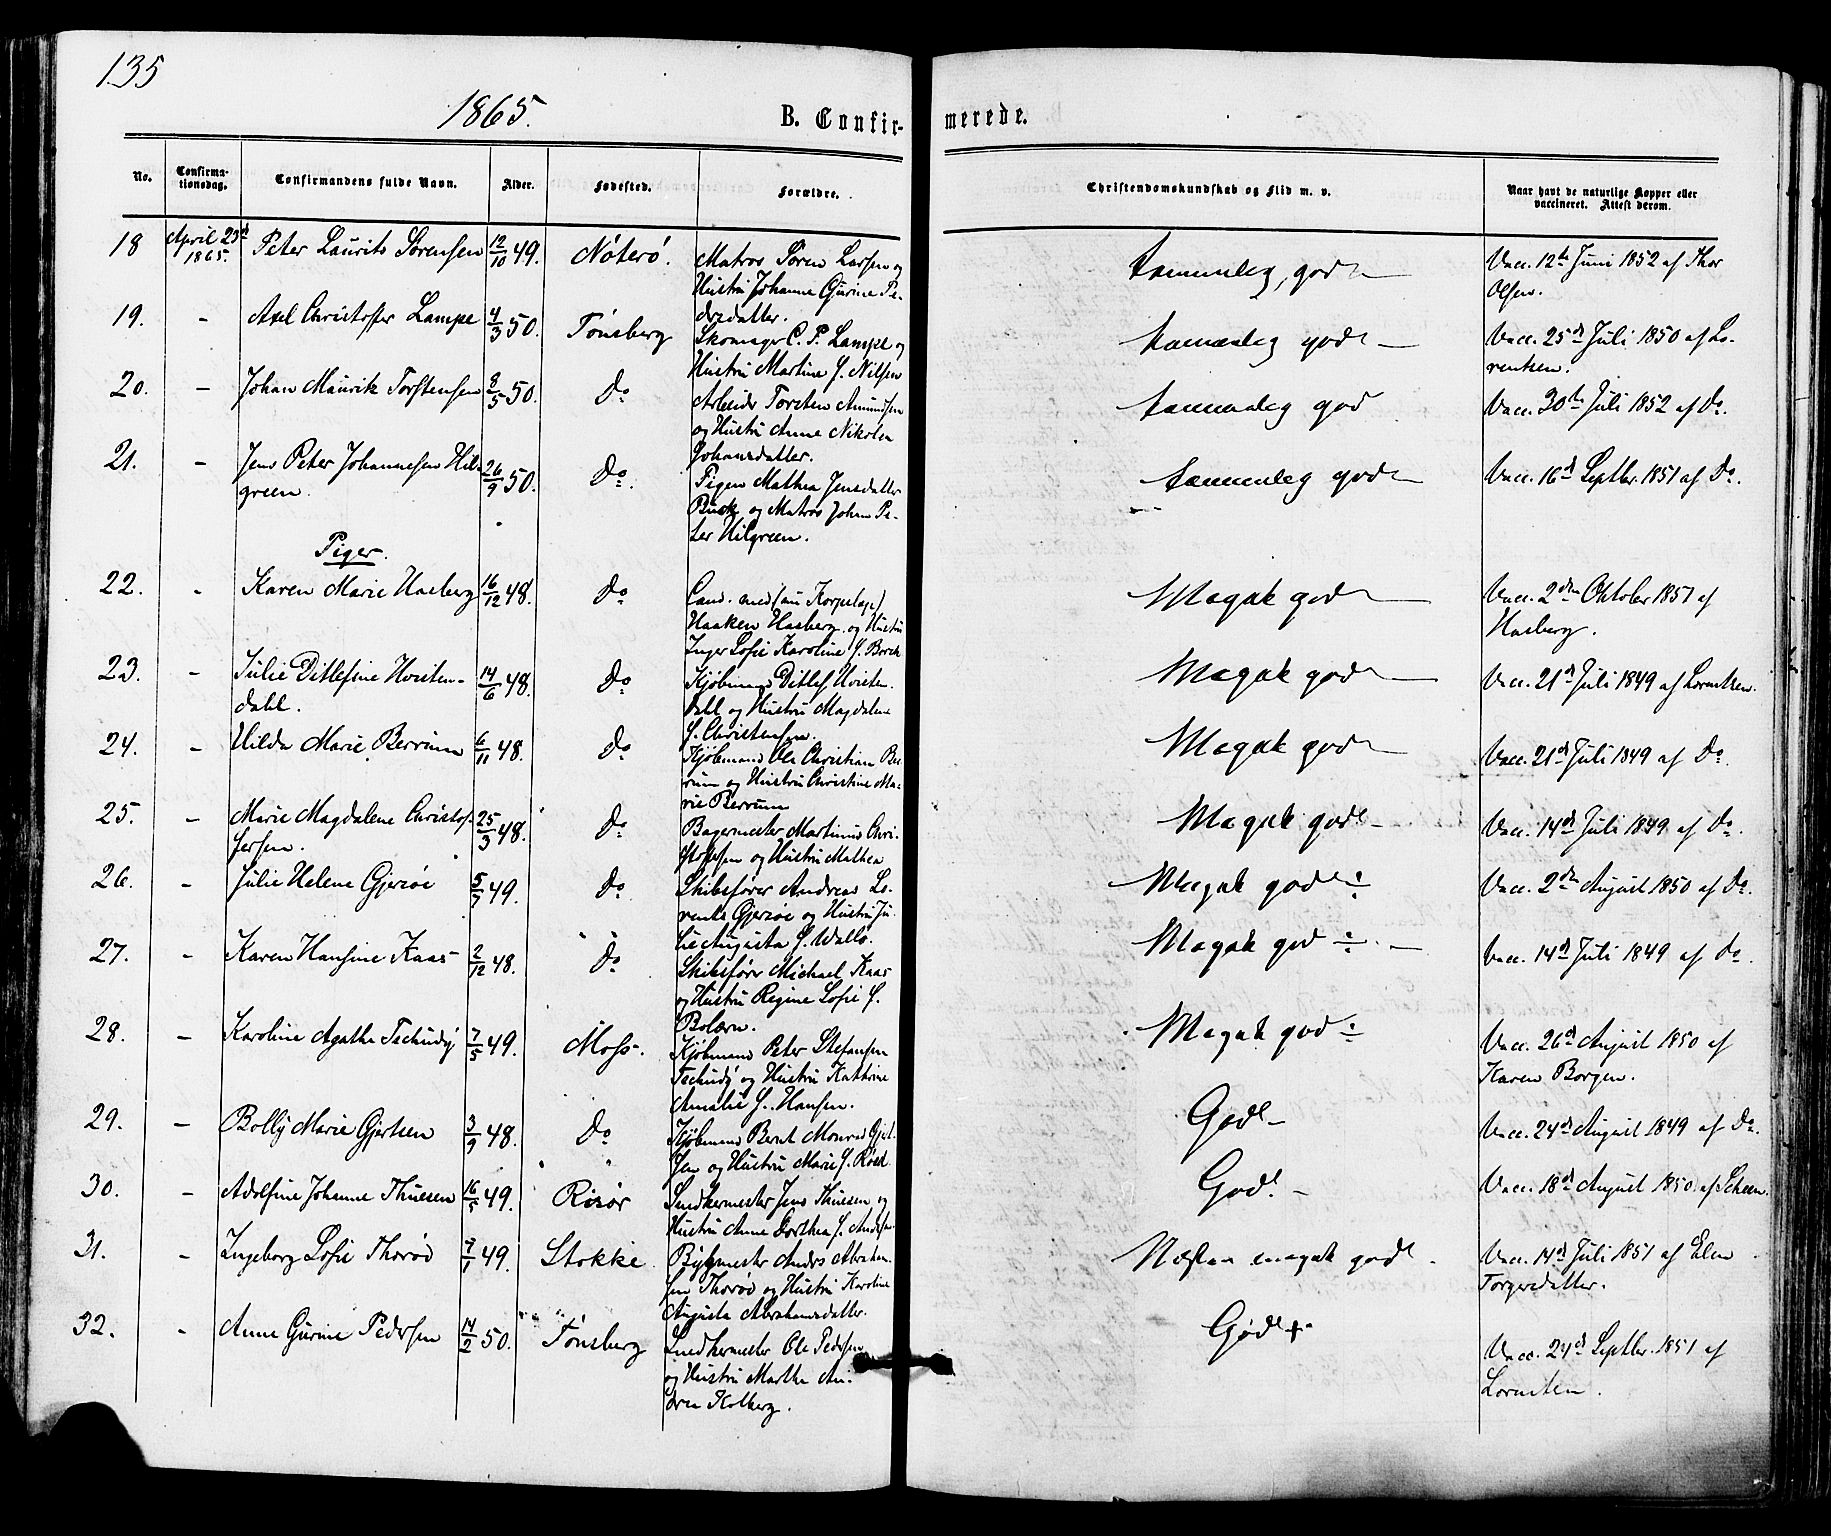 135
1865.
B. Confir-
merede.
No.
Confirma-
tionsdag.
Confirmandens fulde Navn.
Alder.
Fødested.
Forældre.
Christendomskundskab og Flid m. v.
Naar havt de naturlige Kopper eller
vaccineret. Attest derom.
18
April 23d
1865.
Peter Laurits Sörensen
12/10 49.
Nöterö.
Matros Sören Larsen og
Hustru Johanne Gurine Pe-
dersdatter.
temmelig god
Vacc. 12te Juni 1852 af Thor
Olsen.
19.
-
Axel Christoffer Lampe
4/3 50.
Tönsberg
Skomager C. P. Lampe og
Hustru Martine f. Nilsen
temmelig god -
Vacc. 25d Juli 1850 af Lo-
rentsen.
20.
-
Johan Maurik Torstensen
8/5 50.
Do
Arbeider Torsten Amundsen
og Hustru Anne Nikoline
Johansdatter.
temmelig god
Vacc. 30te Juli 1852 af Do.
21.
-
Jens Peter Johannesen Hil-
green.
26/9 50.
Do.
Pigen Mathea Jensdatter
Busk og Matros Johan Pe-
ter Hilgreen.
temmelig god
Vacc. 16d Septbr. 1851 af Do.
Piger.
22.
-
Karen Marie Hasberg
16/12 48.
Do
Cand. med (nu Korpslæge)
Haaken Hasberg og Hustru
Inger Sofie Karoline f. Borch
Meget god
Vacc. 2den Oktober 1851 af
Hasberg.
23.
-
Julie Ditlefine Hvisten-
dahl.
14/6 48.
Do
Kjöbmand Ditlef Hvisten-
dahl og Hustru Magdalene
f. Christensen.
Meget god
Vacc. 21d Juli 1849 af Lorentsen.
24.
-
Hilda Marie Berrum
6/11 48.
Do
Kjöbmand Ole Christian Ber-
rum og Hustru Christine Ma-
rie Berrum
Meget god
Vacc. 21d Juli 1849 af Do.
25.
-
Marie Magdalene Christof-
fersen.
25/3 48.
Do
Bagermester Martinus Chri-
stoffersen og Hustru Mathea
Meget god -
Vacc. 14d Juli 1849 af Do.
26.
-
Julie Helene Gjeröe
5/7 49.
Do
Skibsförer Andreas Lo-
rents Gjeröe og Hustru Ju-
lie Augusta f. Wallö.
Meget god ÷
Vacc. 2den August 1850 af Do.
27.
-
Karen Hansine Kaas
2/12 48.
Do
Skibsförer Michael Kaas
og Hustru Regine Sofie f.
Bolærn.
Meget god ÷ -
Vacc. 14d Juli 1849 af Do.
28.
-
Karoline Agathe Tschudy
7/5 49.
Moss.
Kjöbmand Peter Stefansen
Tschudy og Hustru Kathrine
Amalie f. Hansen.
Meget god ÷
Vacc. 26d August 1850 af
Karen Borgen.
29.
-
Bolly Marie Gjertsen
3/9 48.
Do
Kjöbmand Bernt Monrad Gjert-
sen og Hustru Marie f. Röed
God -
Vacc. 24d August 1849 af Do.
30.
-
Adolfine Johanne Thuesen
16/5 49.
Risör
Snedkermester Jens Thuesen og
Hustru Anne Dorthea f. Andersen
God. -
Vacc. 18d August 1850 af Scheen.
31.
-
Ingeborg Sofie Thoröd
7/1 49.
Stokke.
Bygmester Anders Abraham-
sen Thoröd og Hustru Karoline
Augusta Abrahamsdatter.
Næsten meget god.
Vacc. 14d Juli 1851 af Elen
Torgersdatter.
32.
-
Anne Gurine Pedersen
14/2 50.
Tönsberg
Snedkermester Ole Pedersen
og Hustru Marthe An-
drea Kolberg.
God +
Vacc. 24d Septbr. 1851 af
Lorentsen.